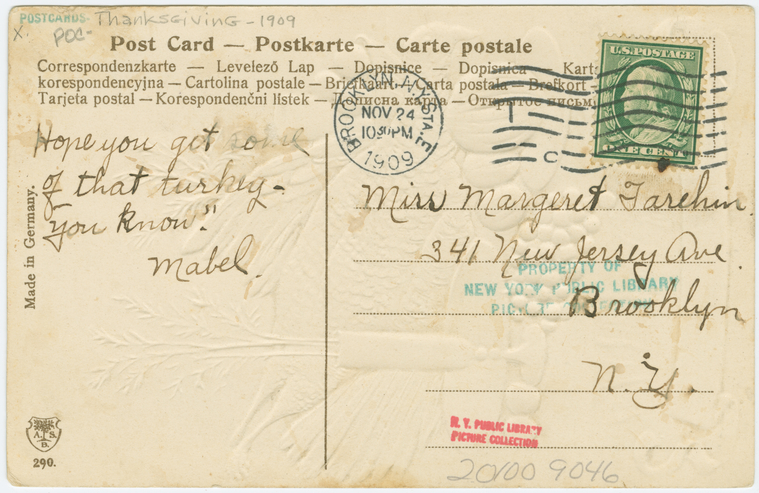 POSTCARDS Thanksgiving - 1909
X. POC-
Post Card — Postkarte — Carte postale
Correspondenzkarte — Levelező Lap — Dopisnice — Dopisnica Karta
korespondencyjna — Cartolina postale — Briefkaart — Carta postala — Brefkort
Tarjeta postal — Korespondenční lístek — Дописна карта — Открытое письмо
U.S. POSTAGE
ONE CENT
BROOKLYN, N.Y. STA. E
NOV 24
10 30 PM
1909
C
Hope you get some
of that turkey -
you know."
Mabel.
Miss Margeret
341 New Jersey Ave.
Brooklyn
N.Y.
PROPERTY OF
NEW YORK PUBLIC LIBRARY
PICTURE COLLECTION
Made in Germany.
A. S.
B.
290.
N. Y. PUBLIC LIBRARY
PICTURE COLLECTION
20100 9046